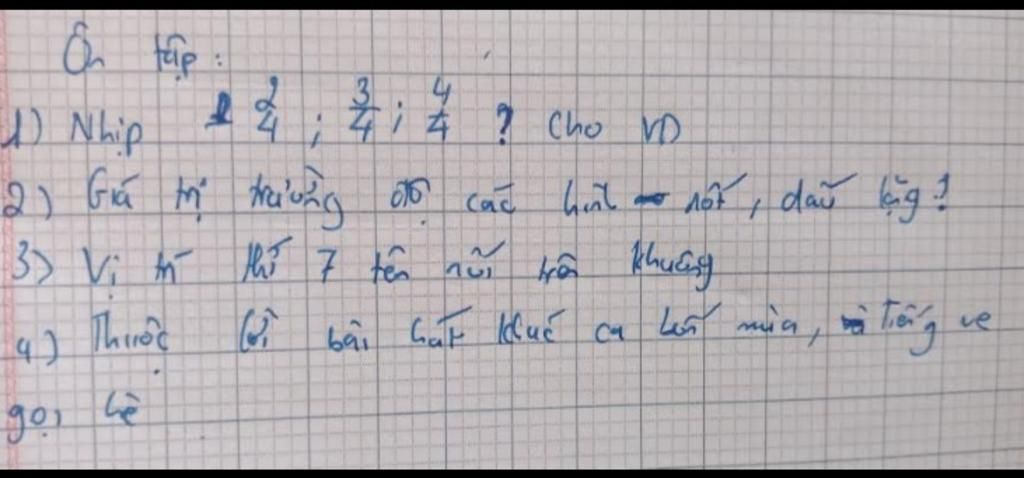 Ôn tập:
1) Nhịp 2/4; 3/4; 4/4? Cho VD
2) Giá trị trường độ các hình nốt, dấu lặng?
3) Vị trí thứ 7 tên nốt trên khuông
4) Thuộc lời bài hát Khúc ca bốn mùa, Tiếng ve
gọi hè